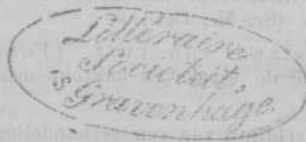 Litteraire
Sociëteit,
's Gravenhage.